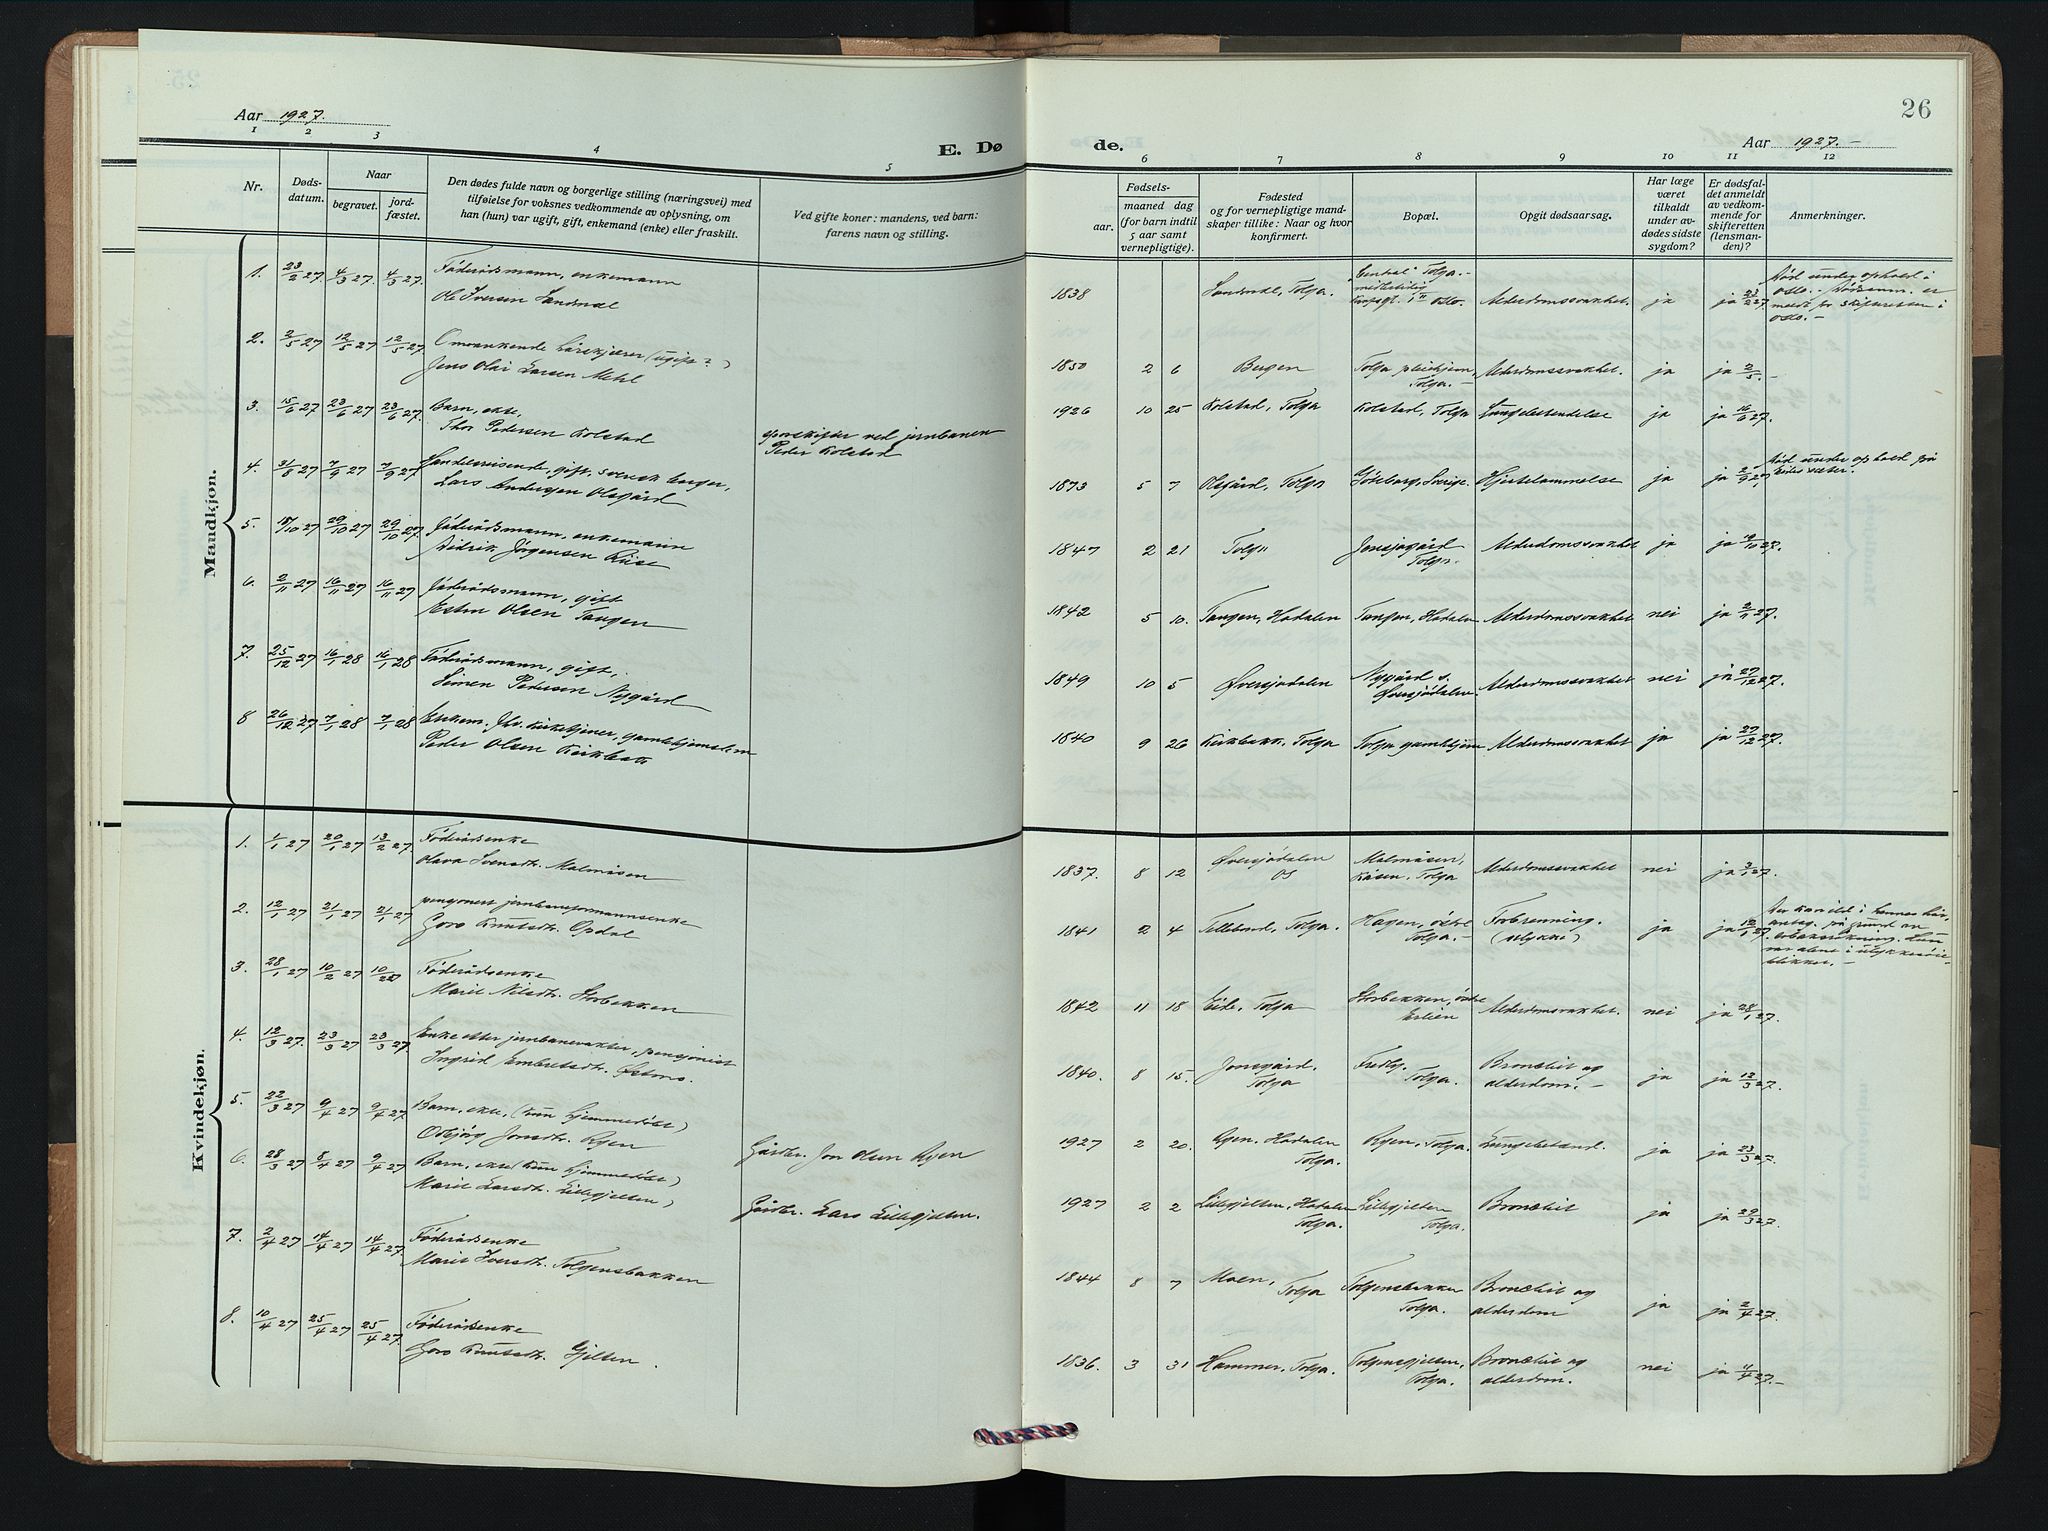 26
Aar 1927.
E. Dø
de.
Aar 1927.-
1 2 3 4 5 6 7 8 9 10 11 12
Nr.
Døds-
datum.
Naar
begravet.
jord-
fæstet.
Den dødes fulde navn og borgerlige stilling (næringsvei) med
tilføielse for voksnes vedkommende av oplysning, om
han (hun) var ugift, gift, enkemand (enke) eller fraskilt.
Ved gifte koner: mandens, ved barn:
farens navn og stilling.
Fødsels-
aar.
maaned dag
(for barn indtil
5 aar samt
vernepligtige).
Fødested
og for vernepligtige mand-
skaper tillike: Naar og hvor
konfirmert.
Bopæl.
Opgit dødsaarsag.
Har læge
været
tilkaldt
under av-
dødes sidste
sygdom?
Er dødsfal-
det anmeldt
av vedkom-
mende for
skifteretten
(lensman-
den)?
Anmerkninger.
Mandkjøn.
1. 23/2 27 4/3 27 4/3 27. Föderådsmann, enkemann
Ole Iversen Sandmæl
1838 Sandmæl, Tolga. Alderdomssvakhet. ja ja 23/2 27
2. 2/5 27 12/5 27 12/5 27 Omvankende (ugift?)
Jens Olai Larsen Mehl
1850 2 6 Bergen Tolga pleiehjem, Tolga.- Alderdomssvakhet. ja ja 2/5.-
3. 15/6 27 23/6 27 23/6 27. Barn, ekte,
Thor Pedersen Kolstad
sporskifter ved jernbanen
Peder Kolstad
1926 10 25 Kolstad, Tolga Kolstad, Tolga Lungebetendelse ja ja 16/6 27.
4. 31/8 27 7/9 27 7/9 27 Handelsreisende, gift, svensk borger,
Lars Andersen Olsgård
1873 5 7 Olsgård, Tolga Göteborg, Sverige. Hjertelammelse ja ja 2/9 27 Död under ophold på
5. 15/10 27 29/10 27 29/10 27 Föderådsmann, enkemann
Didrik Jörgensen Riise
1847 2 21 Tolga Jonsgård Tolga. Alderdomssvakhet ja ja
6. 2/11 27 16/11 27 16/11 27 Föderådsmann, gift
Esten Olsen Tangen
1842 5 10. Tangen, Hodalen Tangen, Hodalen Alderdomssvakhet nei ja 2/11 27.
7. 25/12 27 16/1 28 16/1 28 Föderådsmann, gift.
Simen Pedersen Nygård
1849 10 5 Øversjødalen Nygård s. Øversjødalen Alderdomssvakhet nei ja 27/12 27.
8 26/12 27 7/1 28 7/1 28 Enkem. fhv. kirketjener, gamlehjemslem
Peder Olsen Kirkbakk
1840 9 26 Kirkbakk, Tolga Tolga gamlehjem Alderdomssvakhet ja ja 27/12 27.
Kvindekjøn.
1. 1/1 27 20/1 27 13/2 27 Föderådsenke
Olava Svensdtr. Malmåsen
1837. 8 12 Øversjødalen Os Malmåsen, Kåsen, Tolga Alderdomssvakhet nei ja 3/1 27.
2. 12/1 27 21/1 27 21/1 27 pensjonert jernbaneformannsenke
Goro Knutsdtr. Opdal
1841 2 4 Tellebord, Tolga. Hagen, östre Tolga.- Forbrenning. (ulykke) ja ja 12/1 27
3. 28/1 27 10/2 27 10/2 Föderådsenke
Marit Nilsdtr. Storbekken
1842 11 18 Eide, Tolga Storbekken, östre Erlien Alderdomssvakhet. nei ja 28/1 27.
4. 12/3 27. 23/3 27 23/3 27. Enke etter jernbanevakter, pensjonist
Ingrid Embretsdtr. Østmo.
1840. 8 15. Jonsgård. Tolga Tolga. Bronkit og alderdom.- ja ja 12/3 27.
5. 22/3 27 9/4 27 9/4 27. Barn, ekte, (kun hjemmedöbt)
Osbjørg Jonsdtr. Ryen
Gårdbr. Jon Olsen Ryen
1927 2 20. Ryen, Hodalen Tolga. Ryen, Tolga. ja ja 23/3 27.
6. 28/3 27 8/4 27 9/4 27 Barn, ekte (kun hjemmedöbt)
Marit Larsdtr. Lillegjelten
Gårdbr. Lars Lillegjelten.
1927 2 2 Lillegjelten, Hodalen Tolga. Lillegjelten Tolga. Bronkit ja ja 29/3 27.
7. 2/4 27 14/4 27 14/4 27. Föderådsenke
Marit Iversdtr. Tolgensbakken
1844 8 7 Moen, Tolga Tolgensbakken Tolga. Bronkit og alderdom ja ja 2/4 27.
8. 10/4 27 25/4 27 25/4 27. Föderådsenke
Goro Knutsdtr. Gjelten.
1836. 3 31 Hammer, Tolga. Tolgensgjelten, Tolga. Bronkit og alderdom. nei ja 11/4 27.-